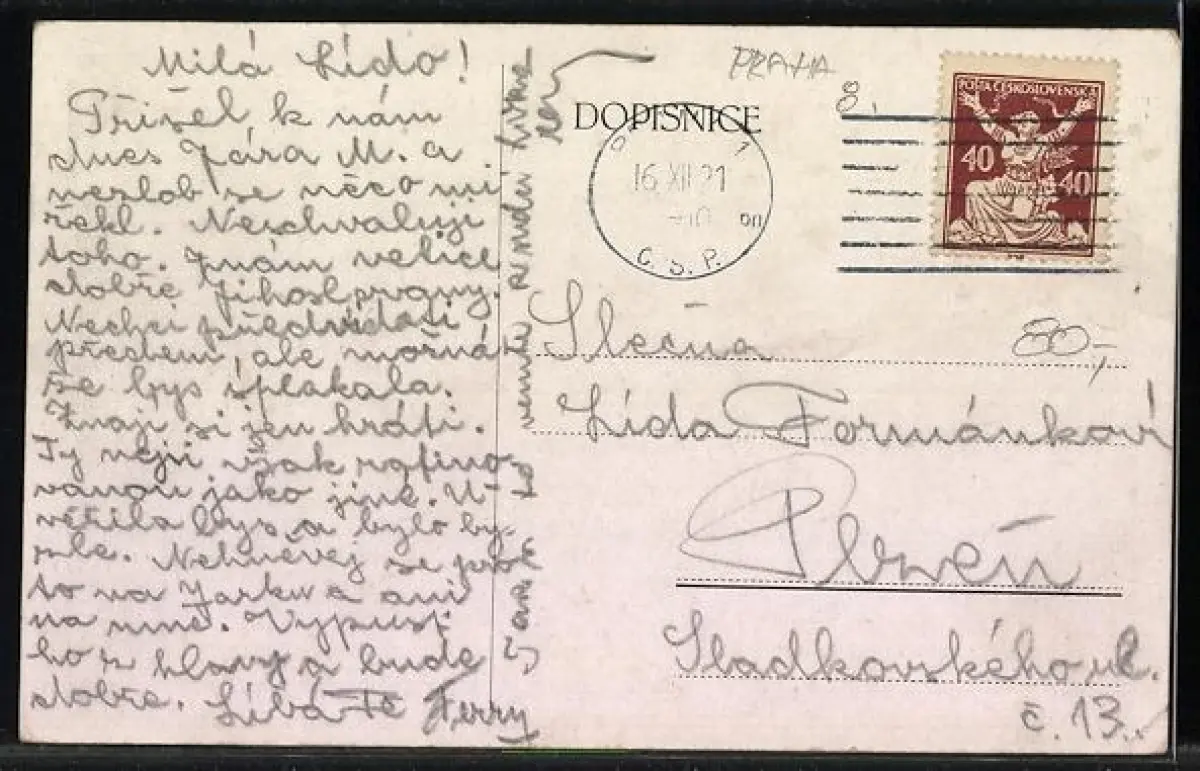 Milá Lído!
Přišel k nám
dnes Jára M. a
nezlob se něco mi
řekl. Neschvaluji
toho. Znám velice
dobře
Nechci předvídati
předem, ale možná
že bys
Znají si jen hráti.
Ty nejsi však rafino-
vanou jako jiné. U-
věřila bys a bylo by
zle. Nehněvej se pro-
to na Jarku a ani
na mne. Vypusť
ho z hlavy a bude
dobře. Líbá Tě Ferry
PRAHA
8.
DOPISNICE
1
16.XII.21
Č.S.P.
POŠTA ČESKOSLOVENSKÁ
40 40
Slečna
80,-
Lída Formánková
Plzeň
Sladkovského ul.
č. 13.